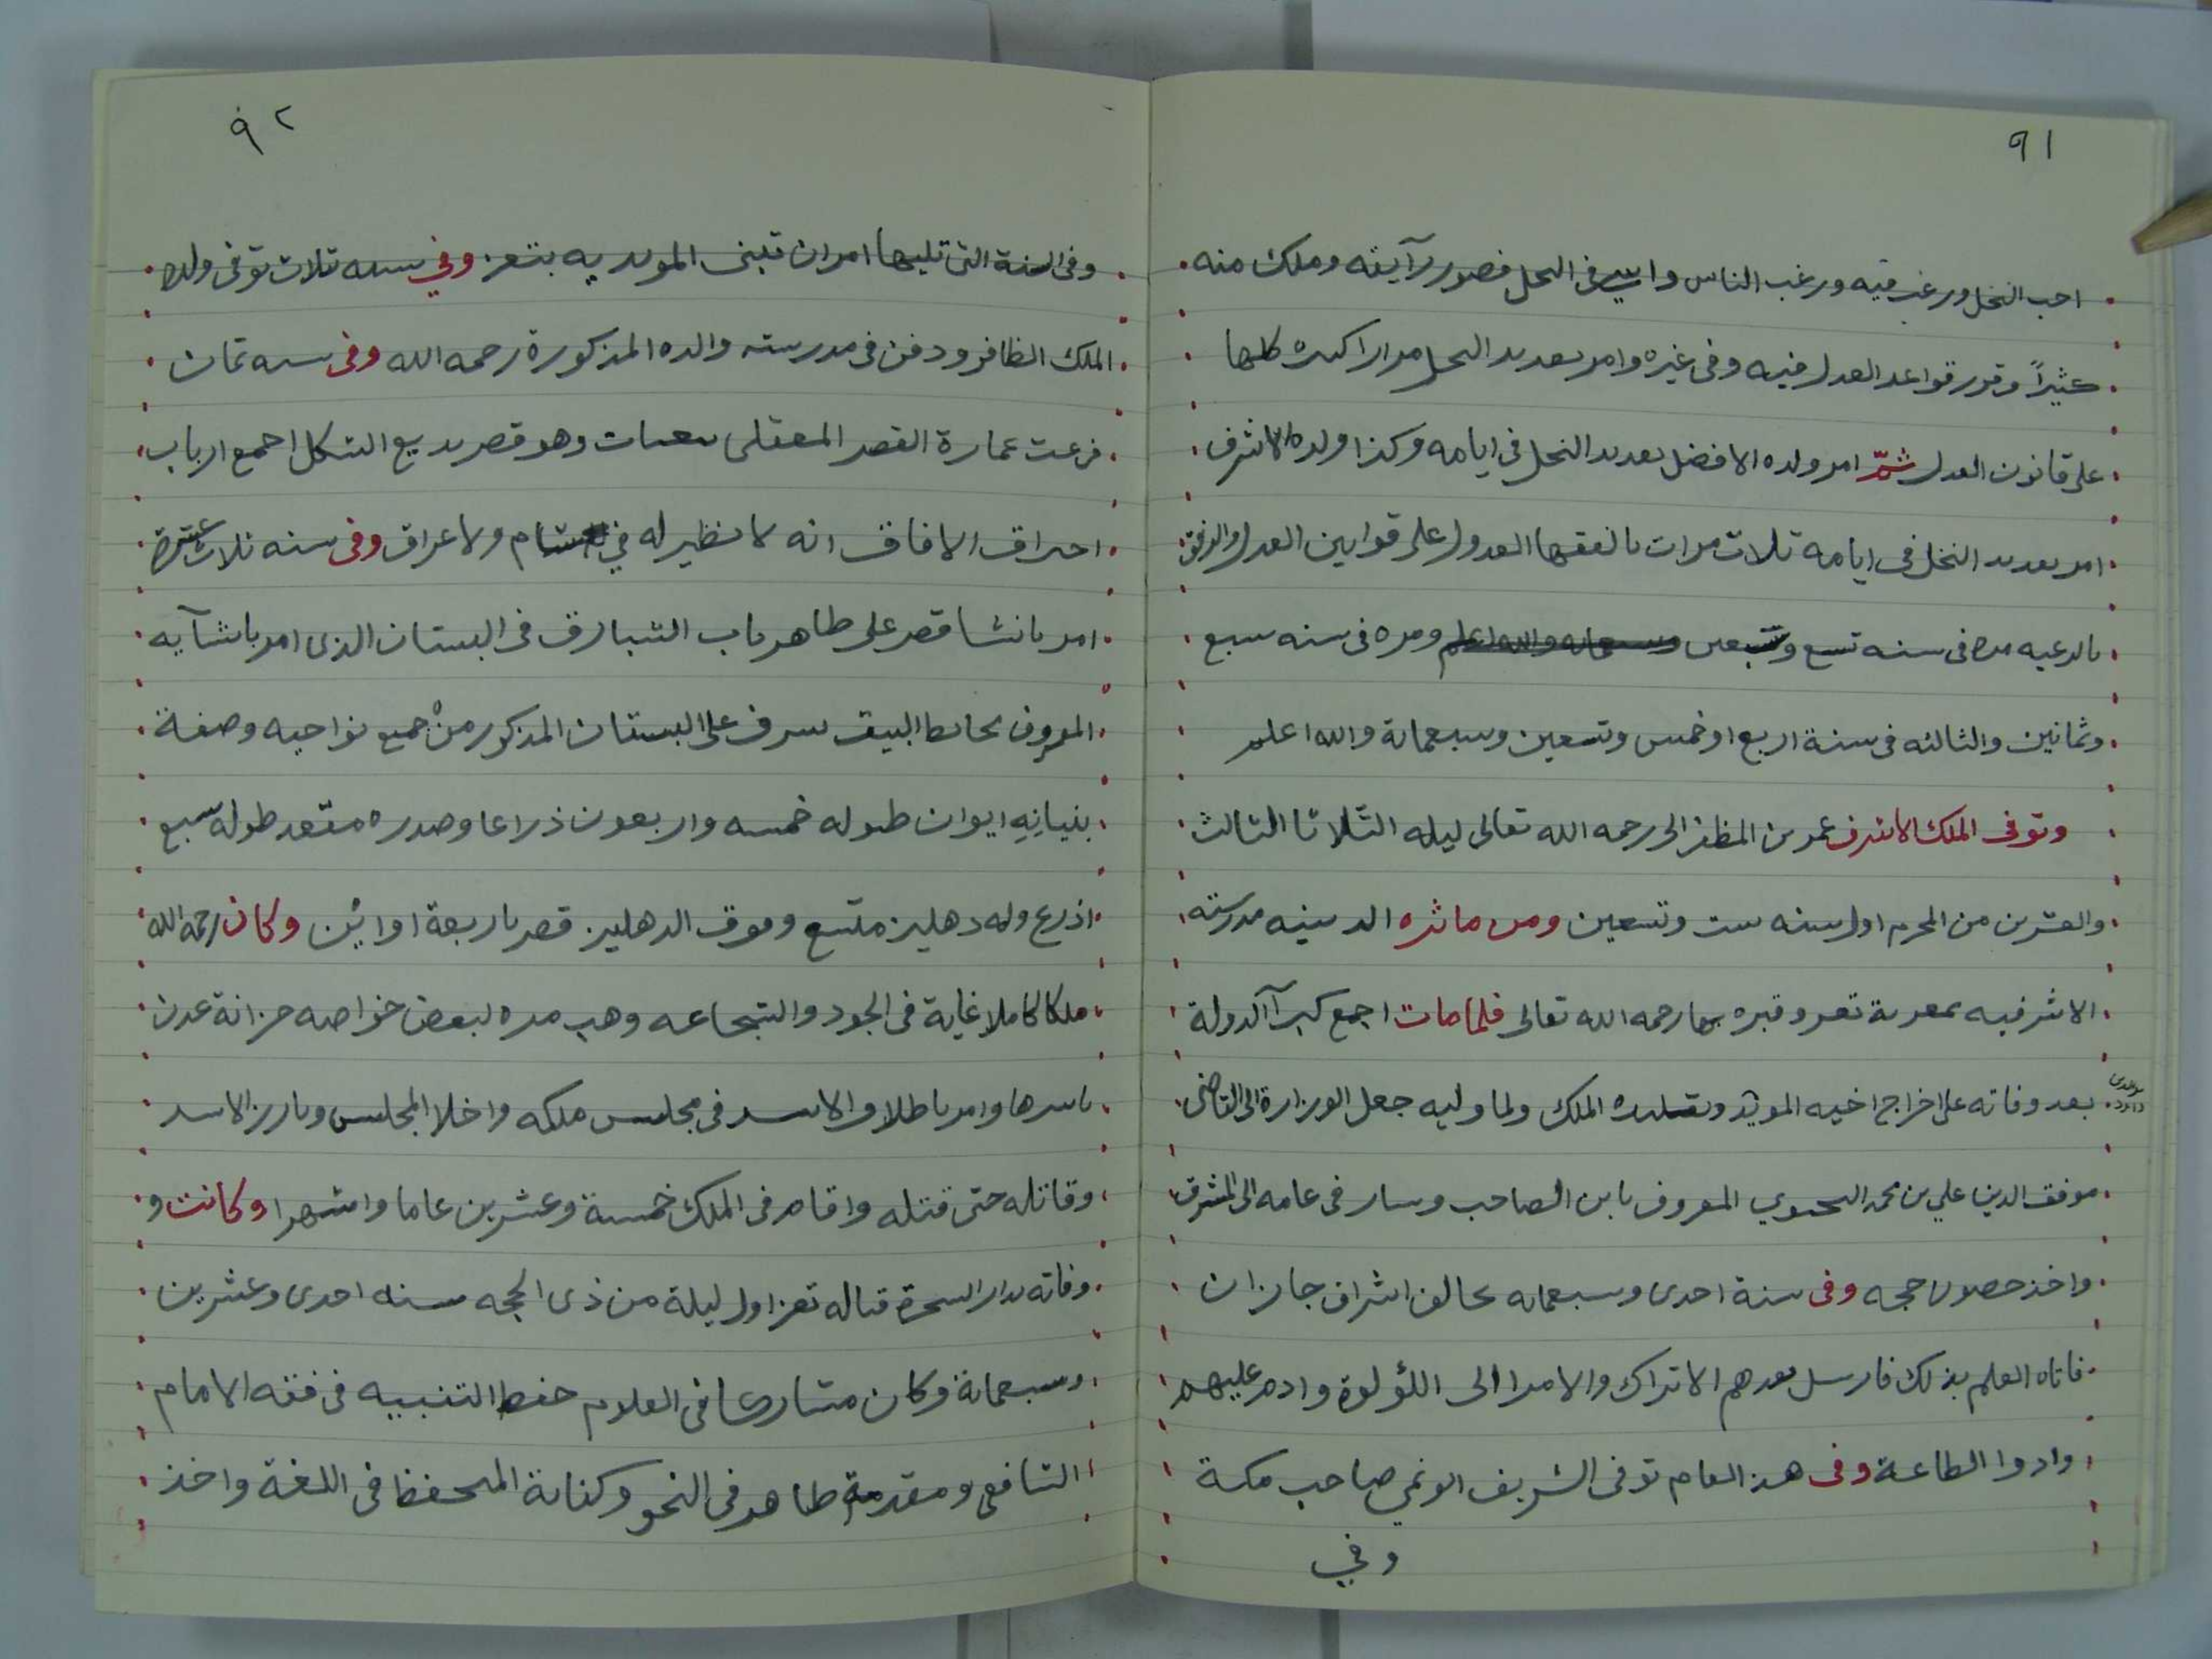 ٩١
احب النخل ورغب فيه ورغب الناس في النخل فصور رآيقه وملك منه
كثيراً وقرر قواعد العدل فيه وفي غيره وامر بعديد النحل مرارا كثيره كلها
على قانون العدل ثمّ امر ولده الافضل بعديد النخل في ايامه وكذا ولده الاشرف
امر بعديد النخل في ايامه ثلاث مرات بالفقها العدول على قوانين العدل والرفق
بالرعيه مره في سنه تسع وسبعين ومره في سنه سبع
وثمانين والثالثه في سنة اربع او خمس وتسعين وسبعماىة والله اعلم
وتوفى الملك الاشرف عمر بن المظفر الى رحمه الله تعالى ليله الثلاثا الثالث
والعشرين من المحرم اول سنه ست وتسعين ومن ماثره الدينيه مدرسته
الاشرفيه بمعربة تعز وقبره بها رحمه الله تعالى فلما مات اجمع كبرآ الدولة
بعد وفاته على اخراج اخيه المويد وتقليده الملك ولما وليه جعل الوزارة الى القاضى
داود
موفق الدين علي بن محمد اليحيوي المعروف بابن الصاحب وسار في عامه الى المشرق
واخذ حصون حجه وفى سنة احدى وسبعمايه تحالف اشراف جازان
فاتاه العلم بذلك فارسل بعدهم الاتراك والامرا الى اللؤلوة وادم عليهم
وادوا الطاعة وفى هذ العام توفى الشريف ابو نمي صاحب مكة
وفي
٩٢
وفى السنة التى تليها امر ان تبنى المويديه بتعز وفي سنه ثلاث توفى ولده
الملك الظافر ودفن فى مدرسته والده المذكورة رحمه الله وفى سنه ثمان
فرعت عمارة القصر المعقلى بثعبات وهو قصر بديع الشكل اجمع ارباب
احراق الافاق انه لا نظير له في شام ولا عراق وفى سنه ثلاث عشرة
امر بانشا قصر على ظاهر باب الشبارق فى البستان الذى امر بانشآيه
المعروف بحائط البيت يسرف على البستان المذكور من جميع نواحيه وصفة
بنيانه ايوان طوله خمسه واربعون ذراعا وصدره مقعد طوله سبع
اذرع وله دهليز متسع وفوق الدهليز قصر باربعة اوائين وكان رحمه الله
ملكا كاملا غاية فى الجود والشجاعه وهب مره لبعض خواصه خزانة عدن
باسرها وامر باطلاق الاسد فى مجلس ملكه واخلا المجلس وبارز الاسد
وقاتله حتى قتله واقام فى الملك خمسة وعشرين عاما واشهرا وكانت و
وفاته بدار السحرة قباله تعز اول ليلة من ذى الحجه سنه احدى وعشرين
وسبعماىة وكان مشاركا فى العلوم حفظ التنبيه فى فقه الامام
الشافعى ومقدمة طاهر فى النحو وكفاية المتحفظ فى اللغة واخذ